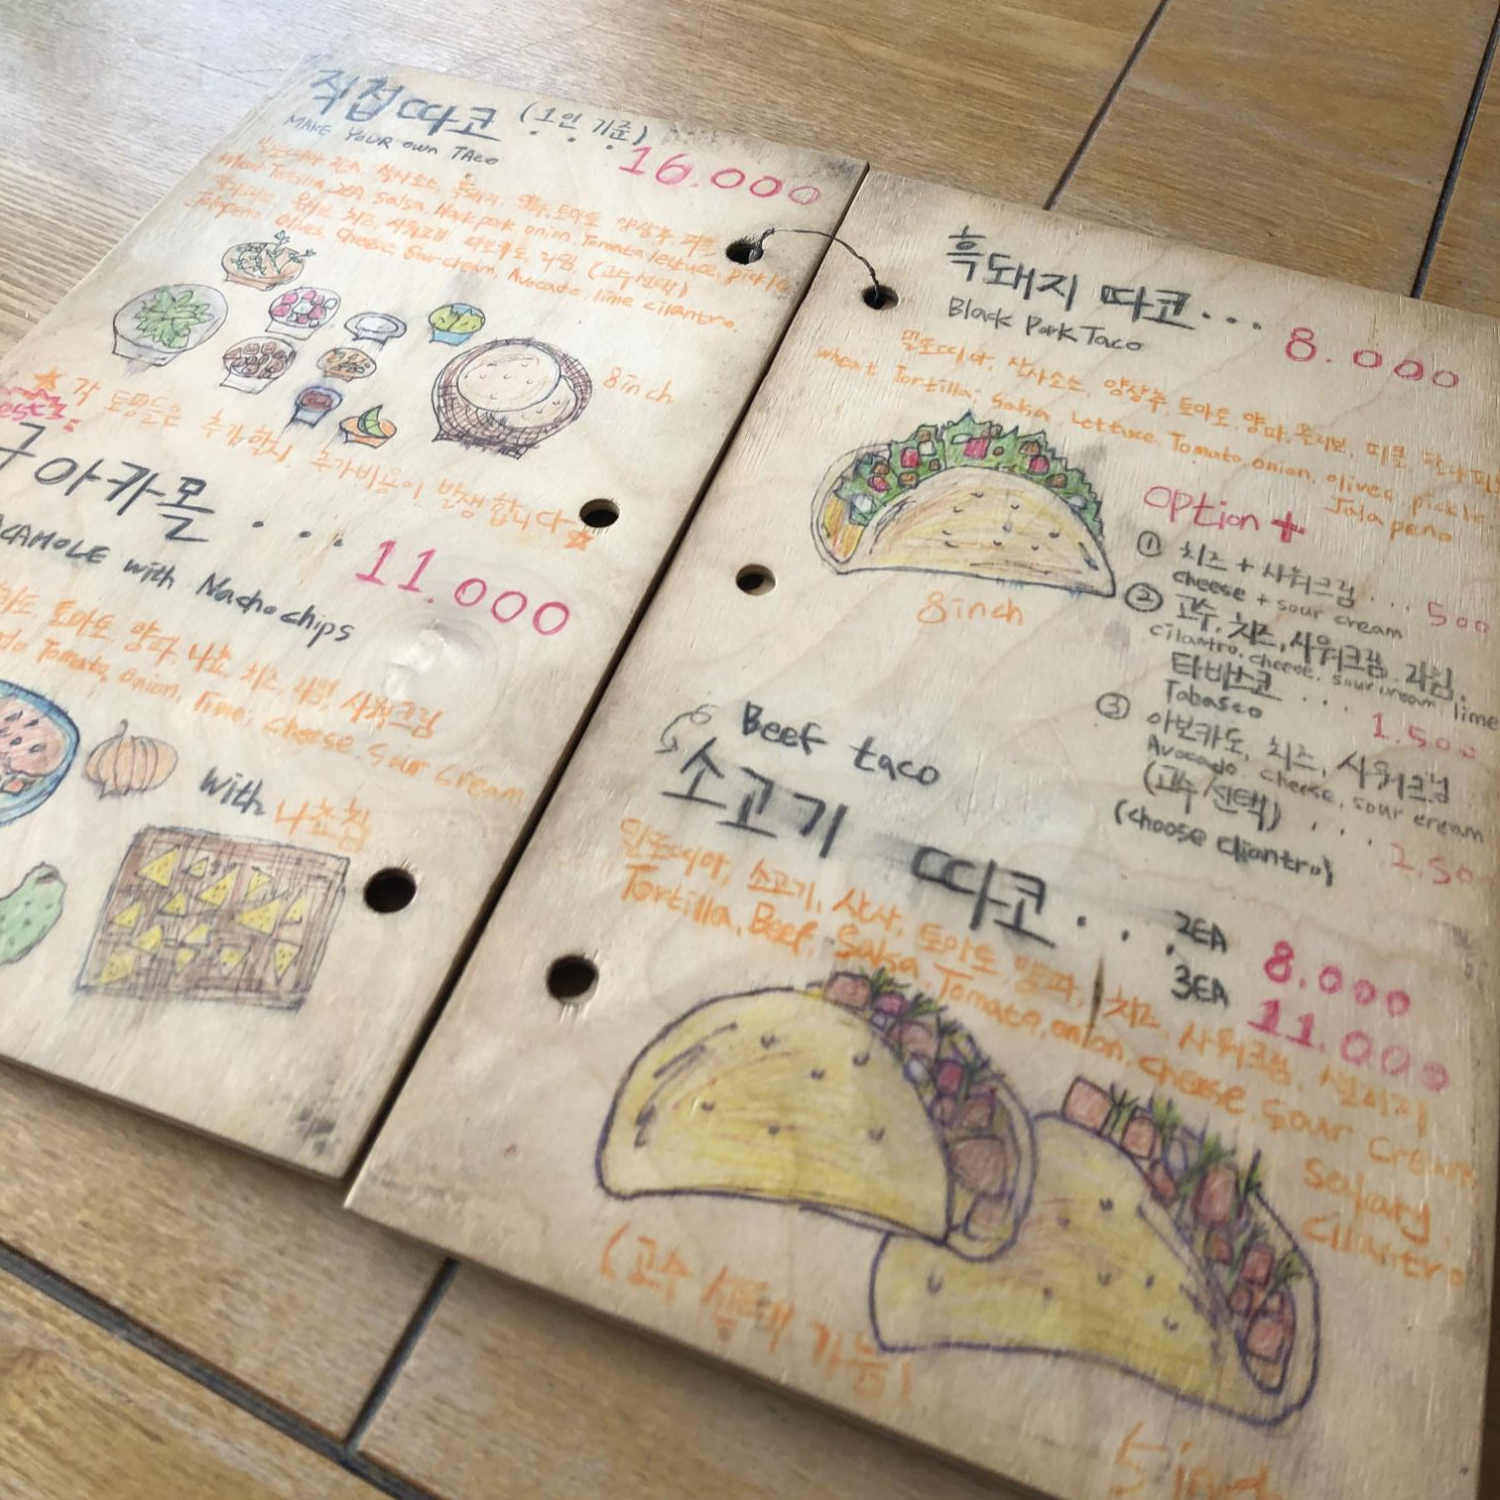 직접따코 (1인 기준)
MAKE YOUR own TAco
16.000
wheat Tortilla 2EA, salsa, black pork, onion, Tomato, lettuce, pickle
Jalapeno, olives, cheese, Sour cream, Avocado, lime cilantro.
8inch
각 토핑들은 추가할시 추가비용이 발생합니다
구아카몰 ...
11.000
CAMOLE with Nacho chips
토마토, 양파, 나쵸, 치즈, 라임, 사워크림
Tomato, onion, lime, cheese, Sour cream
with 나쵸칩
흑돼지 따코...
8.000
Black Pork Taco
또띠아, 살사소스, 양상추, 토마토, 양파, 올리브, 피클,
wheat Tortilla, Salsa, Lettuce, Tomato, onion, olives, pickle
Jalapeno
8inch
option +
① 치즈 + 사워크림 ... 500
cheese + sour cream
② 고수, 치즈, 사워크림, 라임,
cilantro, cheese, sour cream, lime
타바스코 ... 1.500
Tabasco
③ 아보카도, 치즈, 사워크림
Avocado cheese, sour cream
(고수/선택) ... 2.50
(choose cliantro)
Beef taco
소고기 따코...
2EA 8.000
3EA 11.000
소고기, 살사, 토마토, 양파, 치즈, 사워크림,
Tortilla, Beef, Salsa, Tomato, onion, cheese Sour cream
Cilantro
(고수 선택 가능)
5 inch